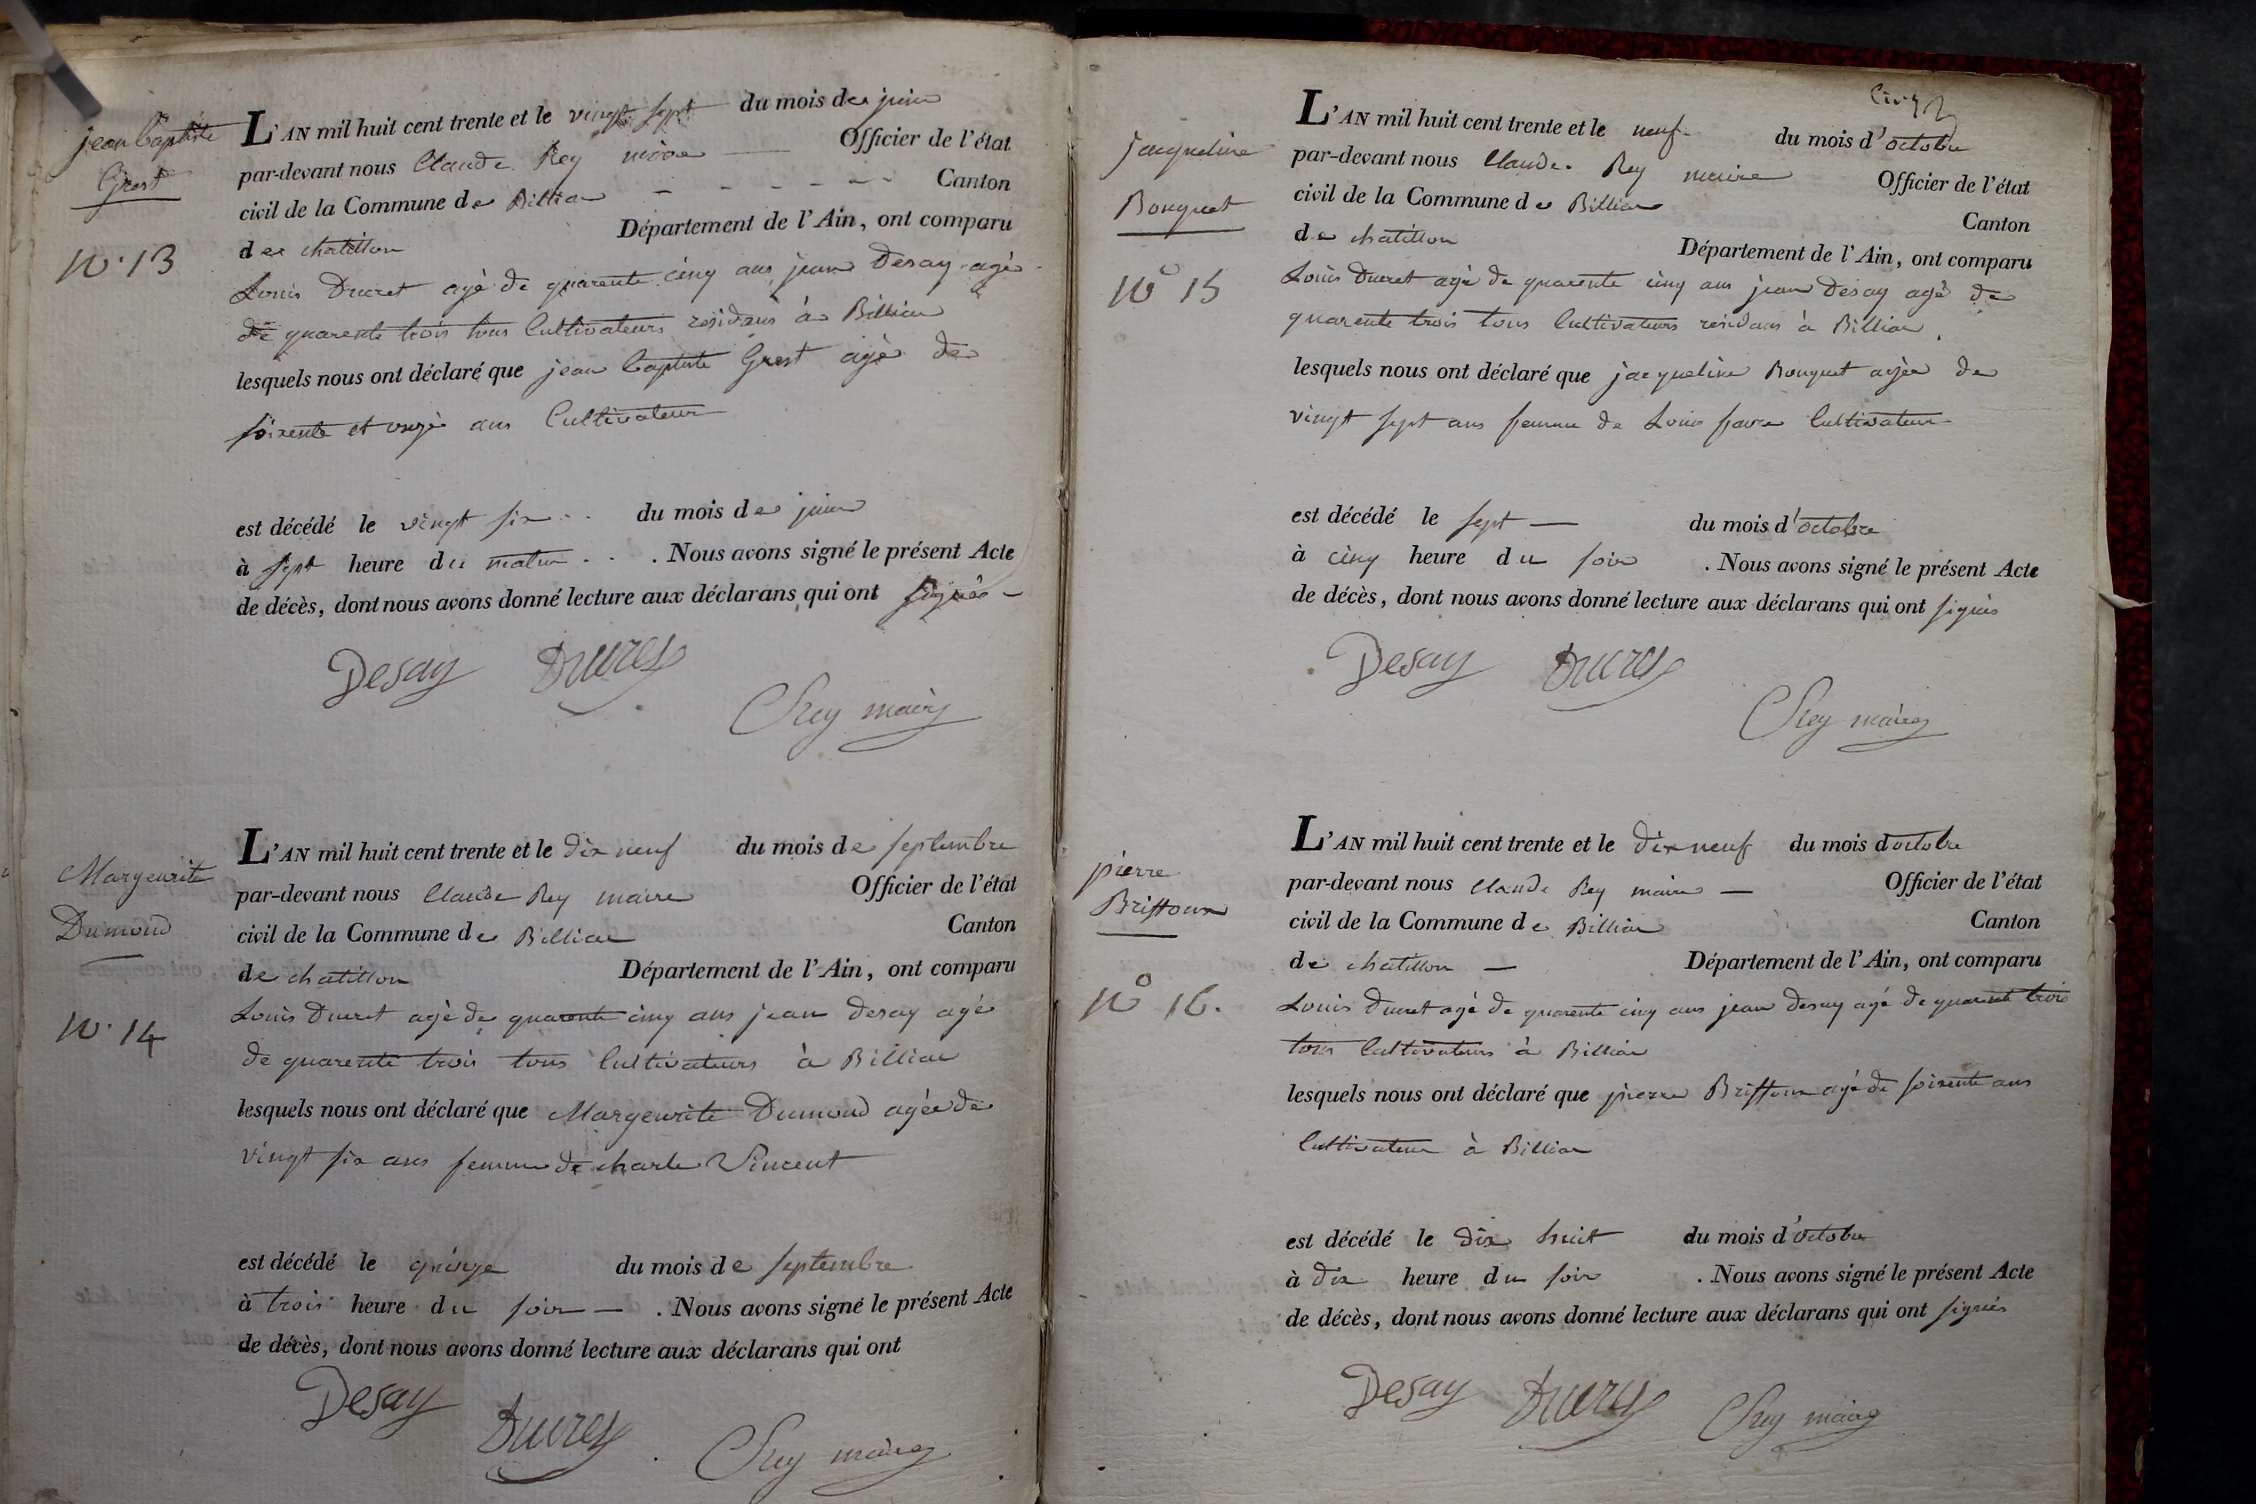 jean Baptiste
Grost
N. 13
L'AN mil huit cent trente et le vingt sept du mois de juin
par-devant nous Claude Rey maire Officier de l'état
civil de la Commune de Billiat Canton
de chatillon Département de l'Ain, ont comparu
Louis Ducret agé de quarente cinq ans jean Desay agé
de quarente trois tous Cultivateurs residans à Billiat
lesquels nous ont déclaré que jean Baptiste Grost agé de
soixente et onze ans Cultivateur
est décédé le vingt six du mois de juin
à sept heure du matin . Nous avons signé le présent Acte
de décès, dont nous avons donné lecture aux déclarans qui ont signés
Desay Ducret
C Rey maire
Margeurite
Dumond
N. 14
L'AN mil huit cent trente et le dix neuf du mois de septembre
par-devant nous Claude Rey maire Officier de l'état
civil de la Commune de Billiat Canton
de chatillon Département de l'Ain, ont comparu
Louis Ducret agé de quarente cinq ans jean Desay agé
de quarente trois tous Cultivateurs à Billiat
lesquels nous ont déclaré que Margeurite Dumond agée de
vingt six ans femme de charle Vincent
est décédé le quinze du mois de septembre
à trois heure du soir . Nous avons signé le présent Acte
de décès, dont nous avons donné lecture aux déclarans qui ont
Desay Ducret C Rey maire
jacqueline
Bouquet
N° 15
L'AN mil huit cent trente et le neuf du mois d'octobre
par-devant nous Claude Rey maire Officier de l'état
civil de la Commune de Billiat Canton
de chatillon Département de l'Ain, ont comparu
Louis Ducret agé de quarente cinq ans jean Desay agé de
quarente trois tous Cultivateurs residans à Billiat
lesquels nous ont déclaré que jacqueline Bouquet agée de
vingt sept ans femme de Louis favre Cultivateur
est décédé le sept du mois d'octobre
à cinq heure du soir . Nous avons signé le présent Acte
de décès, dont nous avons donné lecture aux déclarans qui ont signés
Desay Ducret
C Rey maire
pierre
Briffoux
N° 16.
L'AN mil huit cent trente et le dix neuf du mois d'octobre
par-devant nous Claude Rey maire Officier de l'état
civil de la Commune de Billiat Canton
de chatillon Département de l'Ain, ont comparu
Louis Ducret agé de quarente cinq ans jean desay agé de quarente trois
tous Cultivateurs à Billiat
lesquels nous ont déclaré que pierre Briffoux agé de soixente ans
Cultivateur à Billiat
est décédé le dix huit du mois d'octobre
à dix heure du soir . Nous avons signé le présent Acte
de décès, dont nous avons donné lecture aux déclarans qui ont signés
Desay Ducret C Rey maire